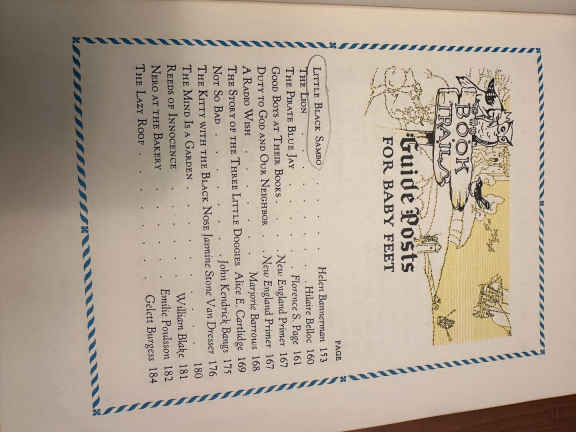 BOOK
TRAILS
Guide Posts
FOR BABY FEET
PAGE
LITTLE BLACK SAMBO . . . . Helen Bannerman 153
THE LION . . . . Hilaire Belloc 160
THE PIRATE BLUE JAY . . . . Florence S. Page 161
GOOD BOYS AT THEIR BOOKS . . . . New England Primer 167
DUTY TO GOD AND OUR NEIGHBOR . . . . New England Primer 167
A RADIO WISH . . . . Marjorie Barrows 168
THE STORY OF THE THREE LITTLE DOGGIES Alice E. Cartlidge 169
NOT SO BAD . . . . John Kendrick Bangs 175
THE KITTY WITH THE BLACK NOSE Jasmine Stone Van Dresser 176
THE MIND IS A GARDEN . . . . 180
REEDS OF INNOCENCE . . . . William Blake 181
NERO AT THE BAKERY . . . . Emilie Poulsson 182
THE LAZY ROOF . . . . Gelett Burgess 184